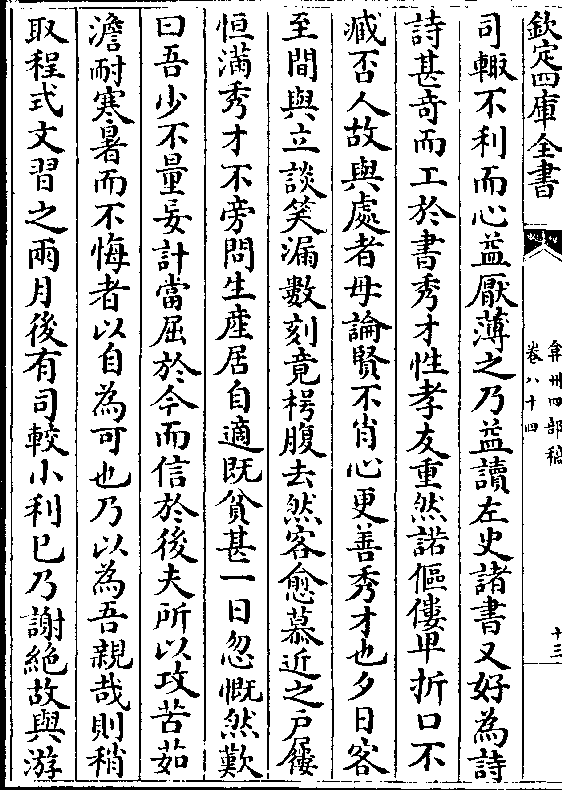 欽定四庫全書
弇州四部稿
卷八十四
十三
司輙不利而心益厭薄之乃益讀左史諸書又好為詩
詩甚竒而工於書秀才性孝友重然諾傴僂卑折口不
臧否人故與處者毋論賢不肖心更善秀才也夕日客
至間與立談笑漏數刻竟枵腹去然客愈慕近之戶屨
恒滿秀才不旁問生産居自適既貧甚一日忽慨然歎
曰吾少不量妄計當屈於今而信於後夫所以攻苦茹
澹耐寒暑而不悔者以自為可也乃以為吾親哉則稍
取程式文習之兩月後有司較小利已乃謝絶故與游